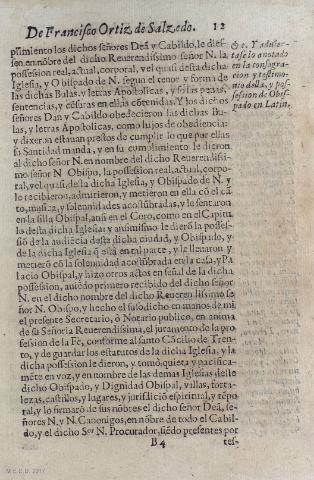 De Francisco Ortiz de Salzedo. 12
plimiento los dichos señores Deã y Cabildo, le dies-
sen en nõbre del dicho Reuerendissimo señor N. la
possession real, actual, corporal, vel quasi desta dicha
Iglesia, y Obispado de N. segun el tenor y forma de
las dichas Bulas, y letras Apostolicas, y só las penas,
sentencias, y cẽsuras en ellas cõtenidas. Y los dichos
señores Dan y Cabildo obedecieron las dichas Bu-
las, y letras Apostolicas, como hijos de obediencia:
y dixeron estauan prestos de cumplir lo que por ellas
su Santidad manda, y en su cumplimiento le dieron
al dicho señor N. en nombre del dicho Reuerendissi-
mo señor N Obispo, la possession real, actual, corpo-
ral, vel quasi, de la dicha Iglesia, y Obispado de N. y
lo recibieron, admitieron, y metieron en ella cõ el cã-
to, musica, y solemnidades acostũbradas, y le sentaron
en la silla Obispal, ansi en el Coro, como en el Capitu
lo desta dicha Iglesia: y ansimismo le dierõ la posses-
siõ de la audiencia desta dicha ciudad, y Obispado, y
de la dicha Iglesia q̃ está en tal parte, y le lleuaron y
metierõ cõ la solemnidad acostũbrada en la casa, y Pa
lacio Obispal, y hizo otros actos en señal de la dicha
possession, auiẽdo primero recibido del dicho señor
N. en el dicho nombre del dicho Reuerendissimo se
ñor N. Obispo, y hecho el susodicho en manos de mi
el presente Secretario, ò Notario publico, en anima
de su Señoria Reuerendissima, el juramento de la pro
fession de la Fè, conforme al santo Cõcilio de Tren-
to, y de guardar los estatutos de la dicha Iglesia, y la
dicha possession le dieron, y tomò quieta y pacifica-
mẽte en voz, y en nombre de las demas Iglesias deste
dicho Obispado, y Dignidad Obispal, villas, forta-
lezas, castillos, y lugares, y jurisdició espiritual, y tẽpo
ral, y lo firmarõ de sus nõbres el dicho señor Deã, se-
ñores N. y N. Canonigos, en nõbre de todo el Cabil-
do, y el dicho Seor N. Procurador, siẽdo presentes por
B 4 tes-
& c. Y aduier-
tase lo anotado
en la consagra-
cion y testimo-
nio della, y pos-
session de Obis-
pado en Latin.
M.E.C.D. 2017